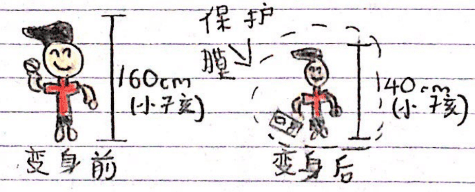 保护
膜
160cm
(小孩)
变身前
140cm
(小孩)
变身后